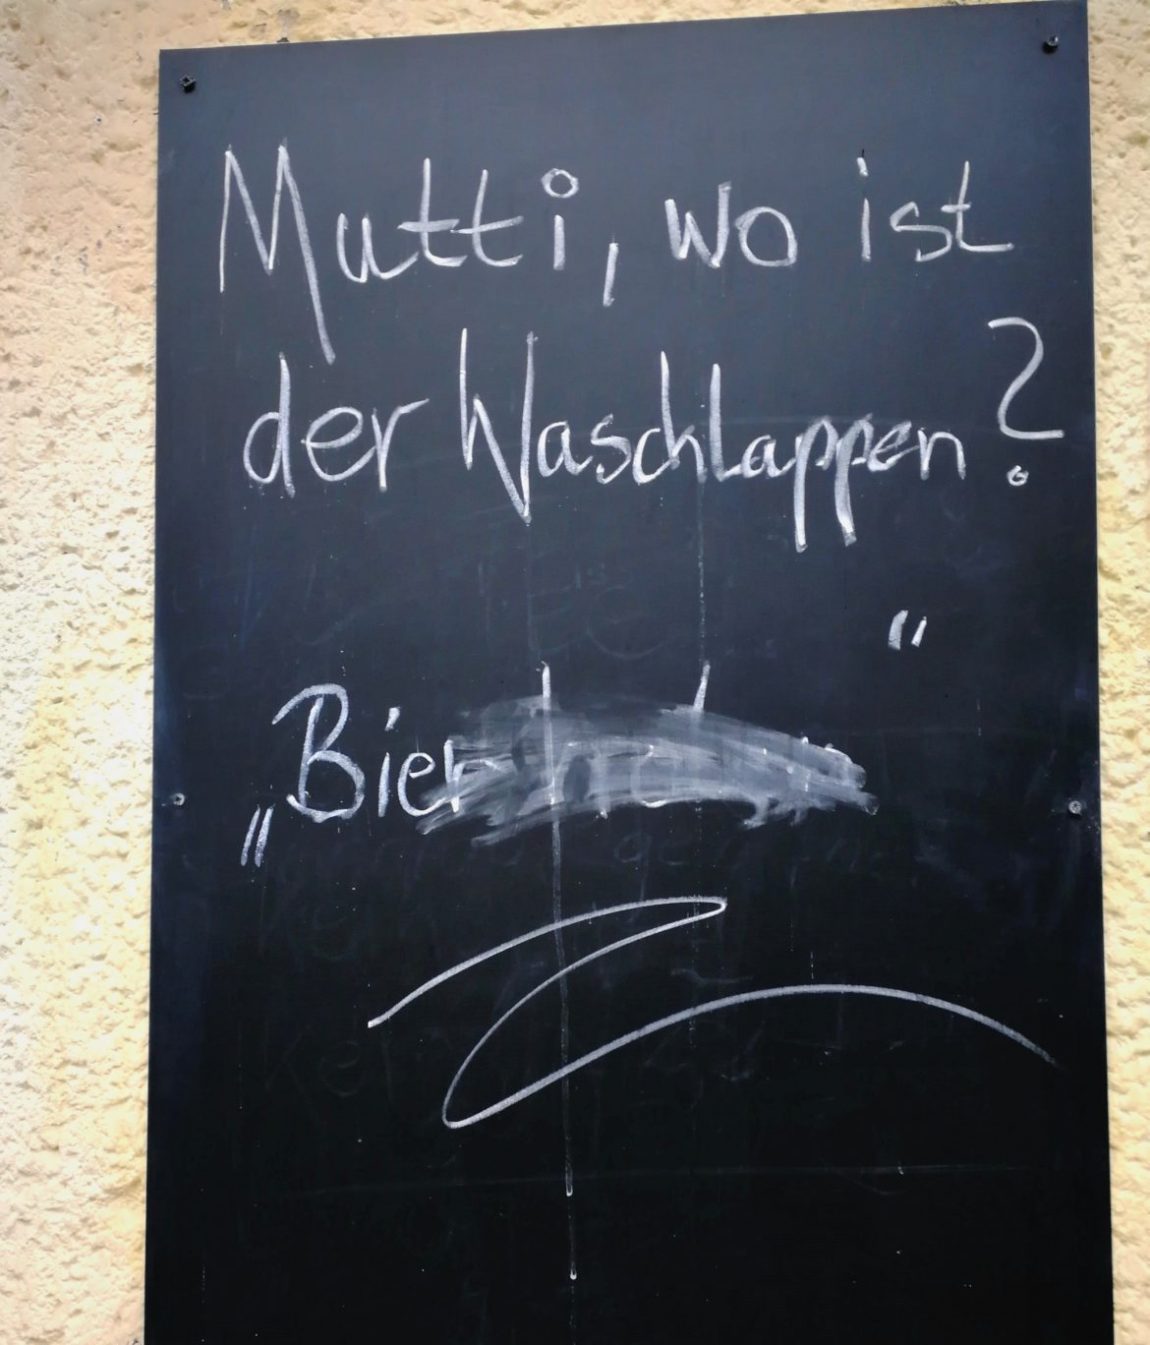 Mutti, wo ist
der Waschlappen?
„Bier“